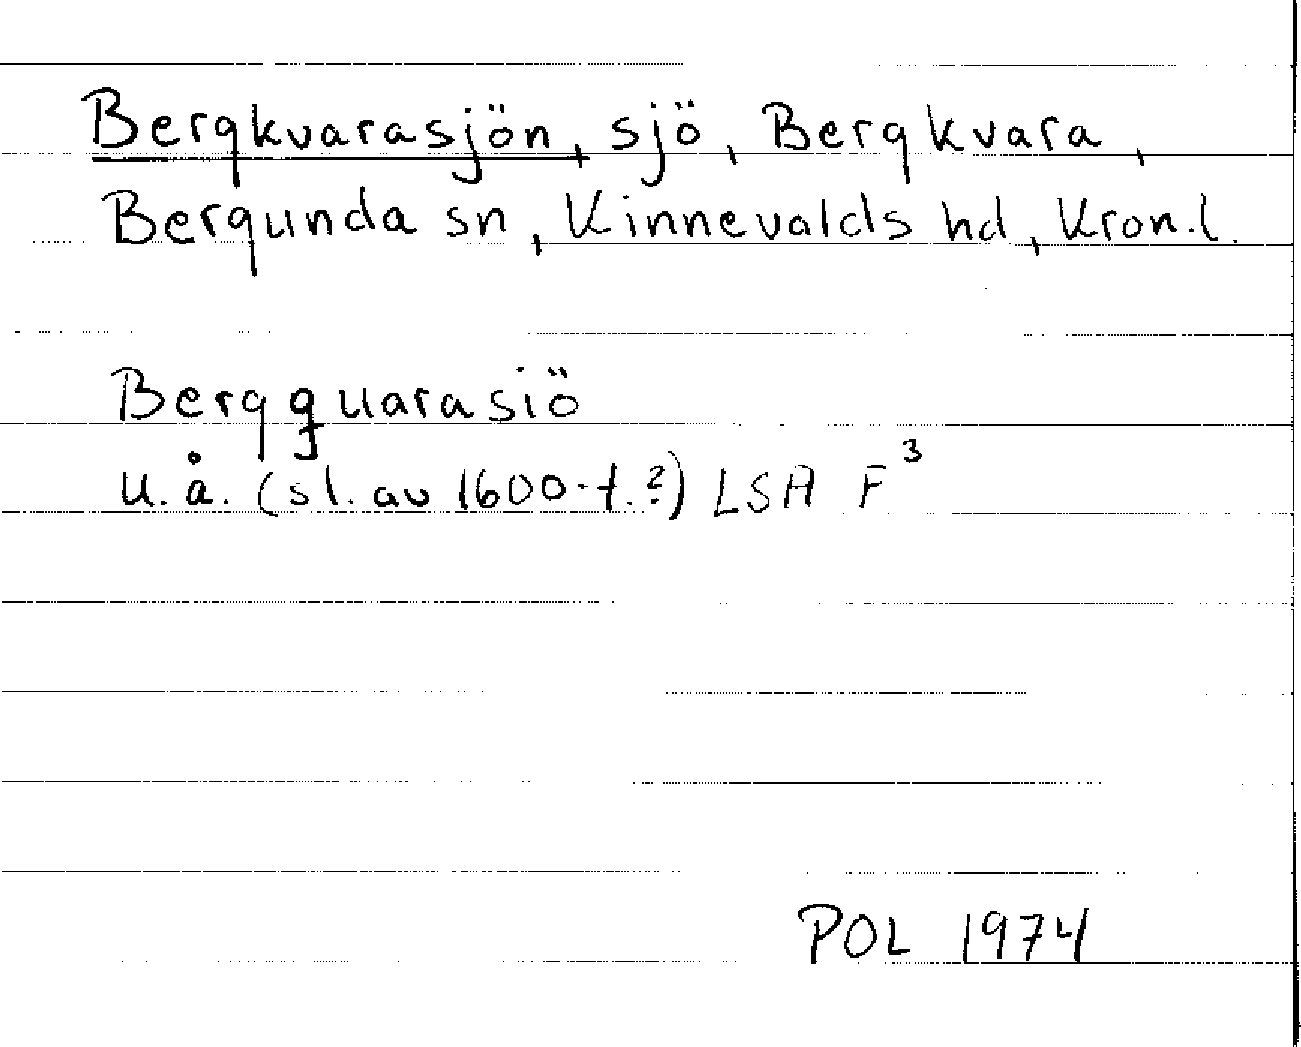 Bergkvarasjön, sjö, Bergkvara,
Bergunda sn, Kinnevalds hd, Kron.l.
Bergquarasiö
u.å. (sl. av 1600-t.?) LSA F³
POL 1974